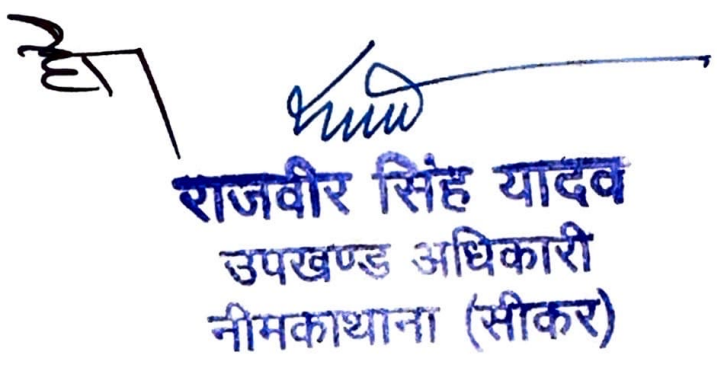 है।
राजवीर सिंह यादव
उपखण्ड अधिकारी
नीमकाथाना (सीकर)